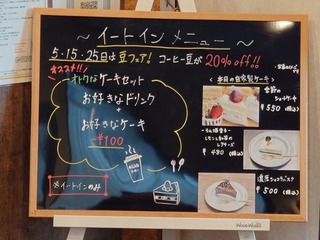 ～イートイン メニュー～
5・15・25日は豆フェア! コーヒー豆が20%off!!
オススメ!!
オトクなケーキセット
お好きなドリンク
+
お好きなケーキ
-¥100
※イートインのみ
本日の自家製ケーキ
季節の
ショートケーキ
¥550 (税込)
レモンと紅茶の
レアチーズ
¥480 (税込)
濃厚ショコラ
¥500 (税込)